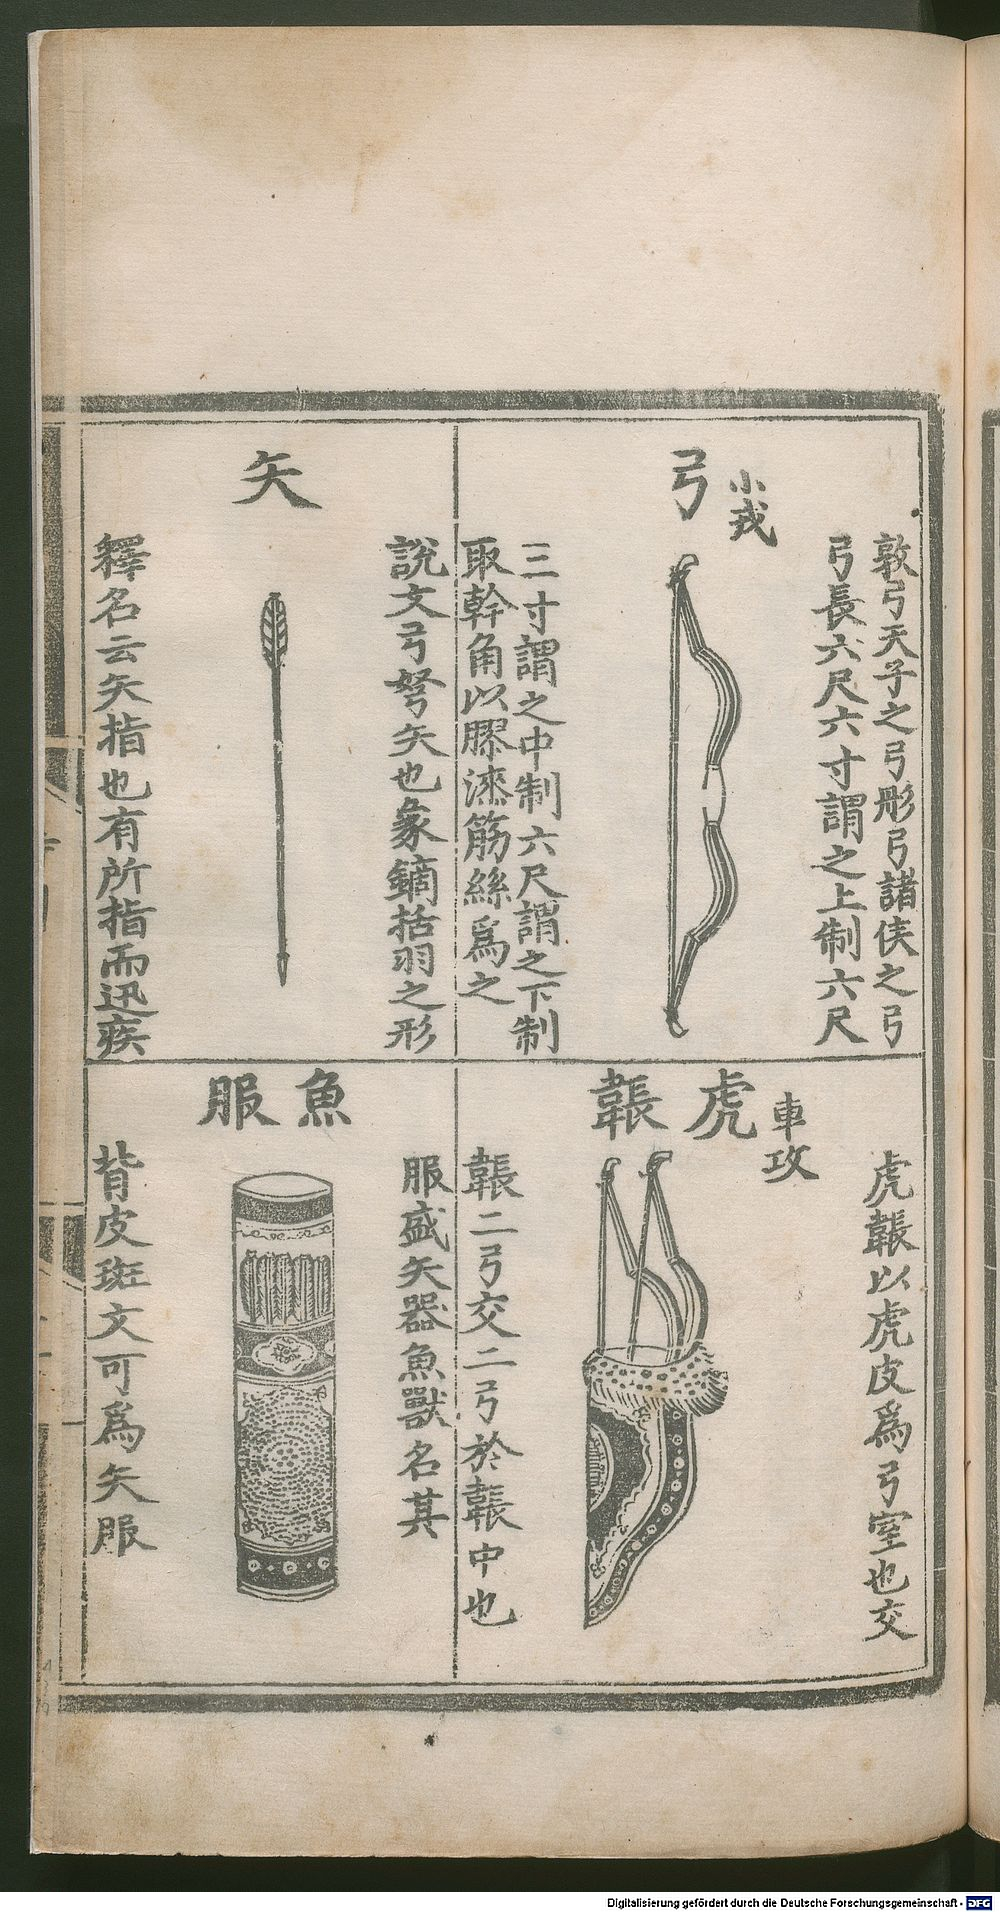 小戎
弓
敦弓天子之弓彤弓諸侯之弓
弓長六尺六寸謂之上制六尺
三寸謂之中制六尺謂之下制
取幹角以膠漆筋絲爲之
矢
說文弓弩矢也象鏑括羽之形
釋名云矢指也有所指而迅疾
車攻
虎韔
虎韔以虎皮爲弓室也交
韔二弓交二弓於韔中也
魚服
服盛矢器魚獸名其
背皮斑文可爲矢服
Digitalisierung gefördert durch die Deutsche Forschungsgemeinschaft - DFG